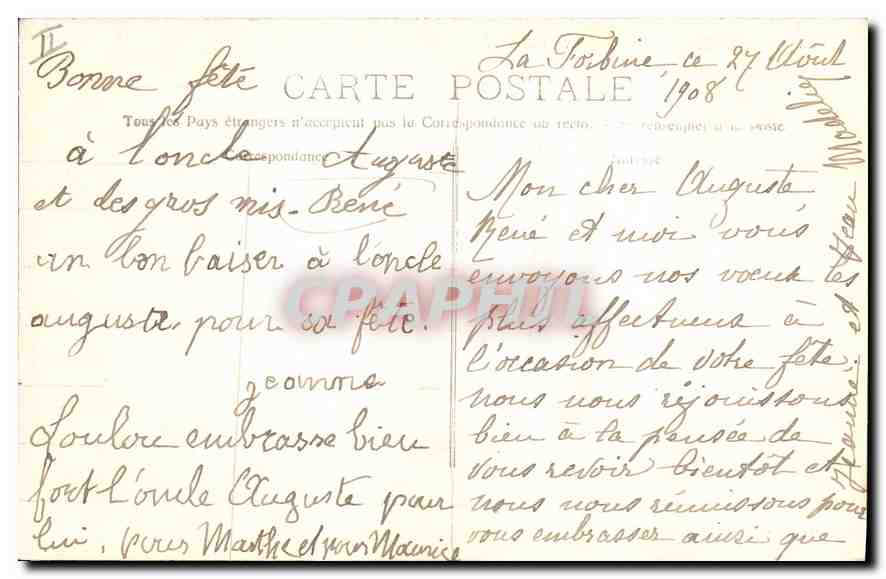 II
CARTE POSTALE
Tous les Pays étrangers n'acceptent pas la Correspondance au recto. se renseigner à la Poste
Correspondance
Adresse
Bonne fête
à l'oncle Auguste
et des gros mis. René
un bon baiser à l'oncle
auguste, pour sa fête.
jeanne
Loulou embrasse bien
fort l'oncle Auguste pour
lui, pour Marthe et pour Maurice
La Forbine, ce 27 Août
1908
Mon cher Auguste
René et moi vous
envoyons nos vœux les
plus affectueux à
l'occasion de votre fête,
nous nous réjouissons
bien à la pensée de
vous revoir bientôt et
nous nous réunissons pour
vous embrasser ainsi que
et Jean
CPARAMA